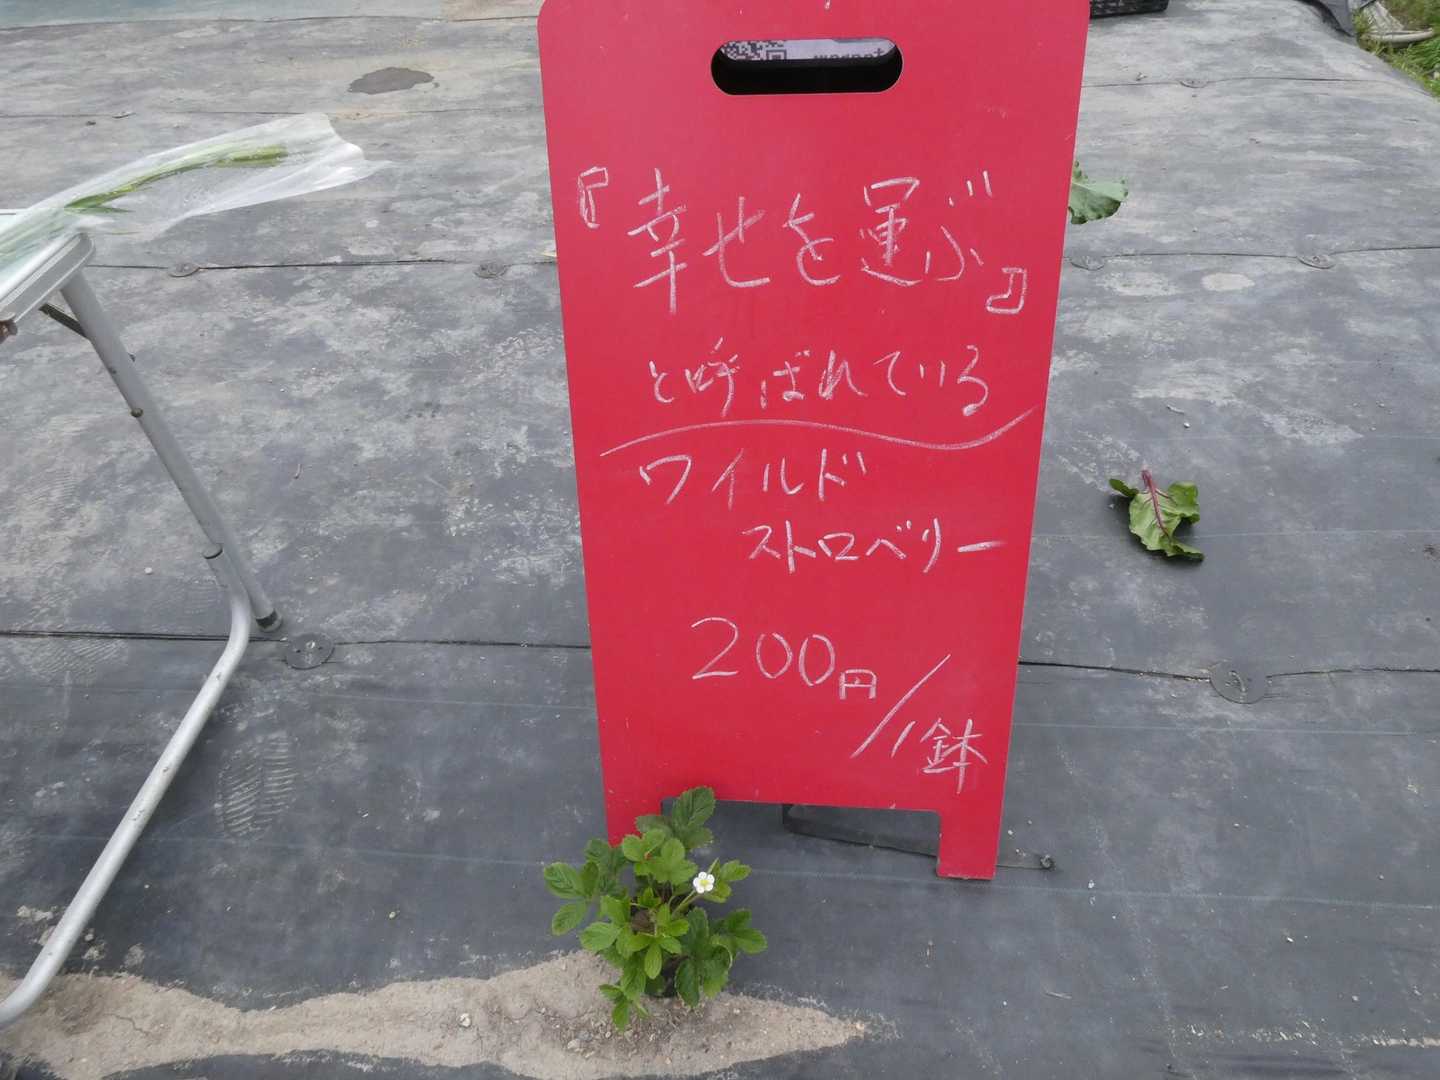 『幸せを運ぶ』
と呼ばれている
ワイルド
ストロベリー
200円/1鉢